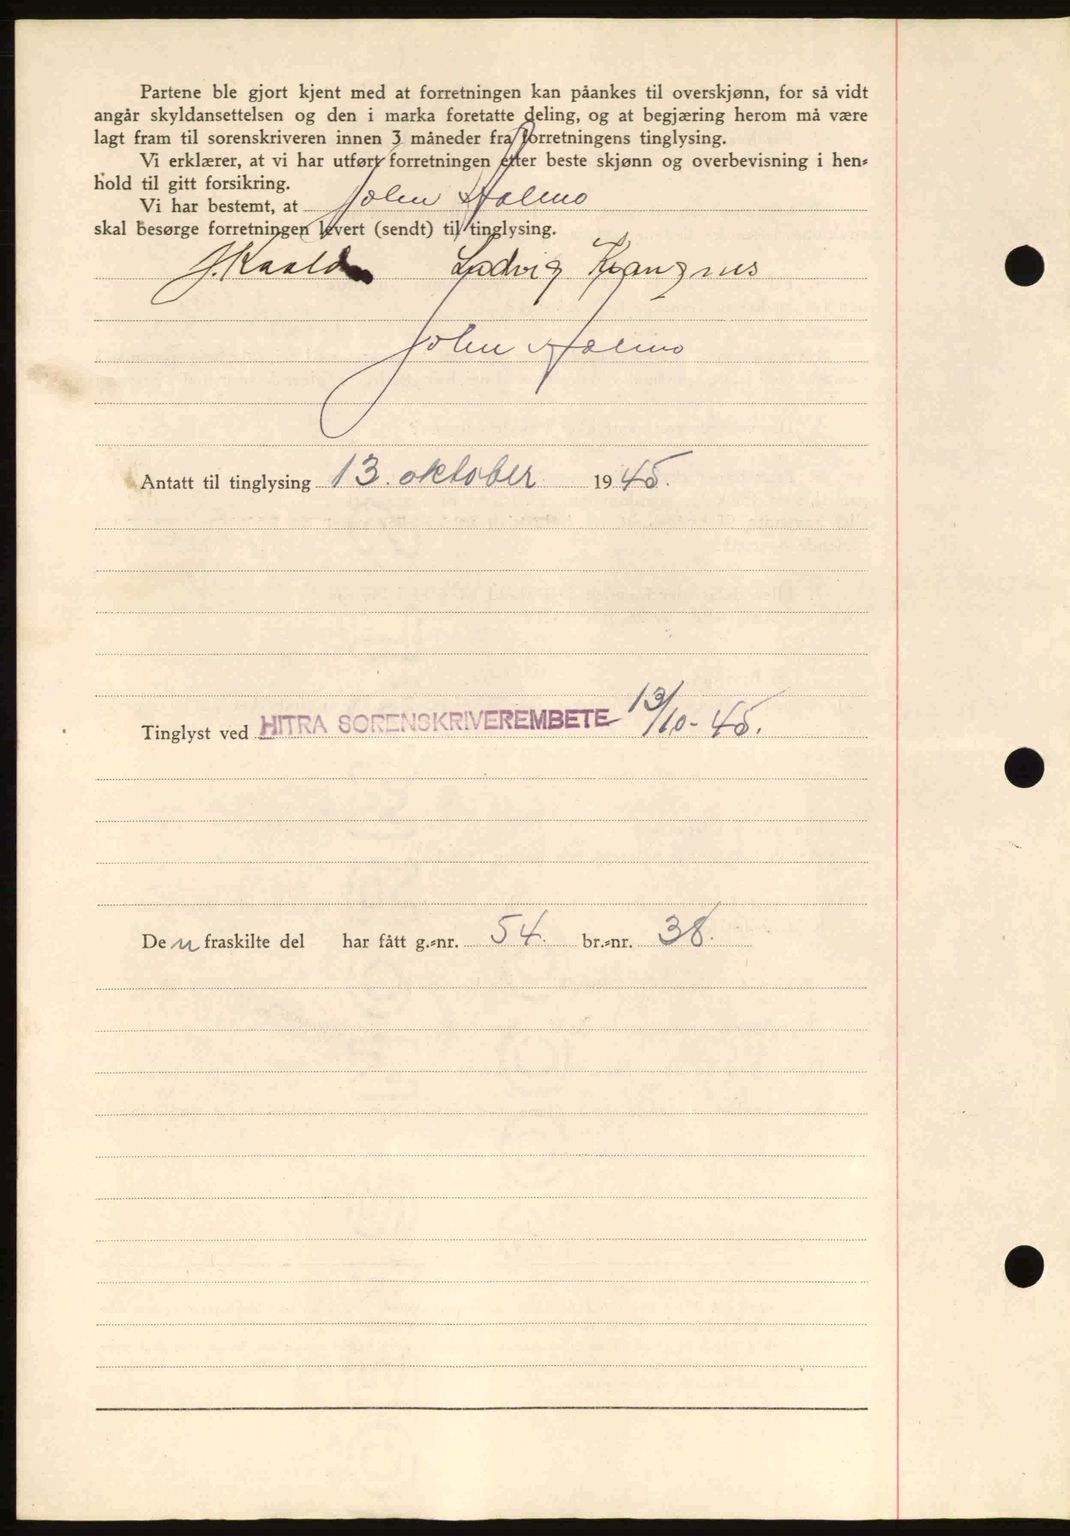 Partene ble gjort kjent med at forretningen kan påankes til overskjønn, for så vidt
angår skyldansettelsen og den i marka foretatte deling, og at begjæring herom må være
lagt fram til sorenskriveren innen 3 måneder fra forretningens tinglysing.
Vi erklærer, at vi har utført forretningen etter beste skjønn og overbevisning i hen-
hold til gitt forsikring.
Vi har bestemt, at John Holmo
skal besørge forretningen levert (sendt) til tinglysing.
J. Kaald Ludvig
John Holmo
Antatt til tinglysing 13. oktober 1945.
Tinglyst ved HITRA SORENSKRIVEREMBETE 13/10-45.
Den fraskilte del har fått g.-nr. 54. br.-nr. 38.